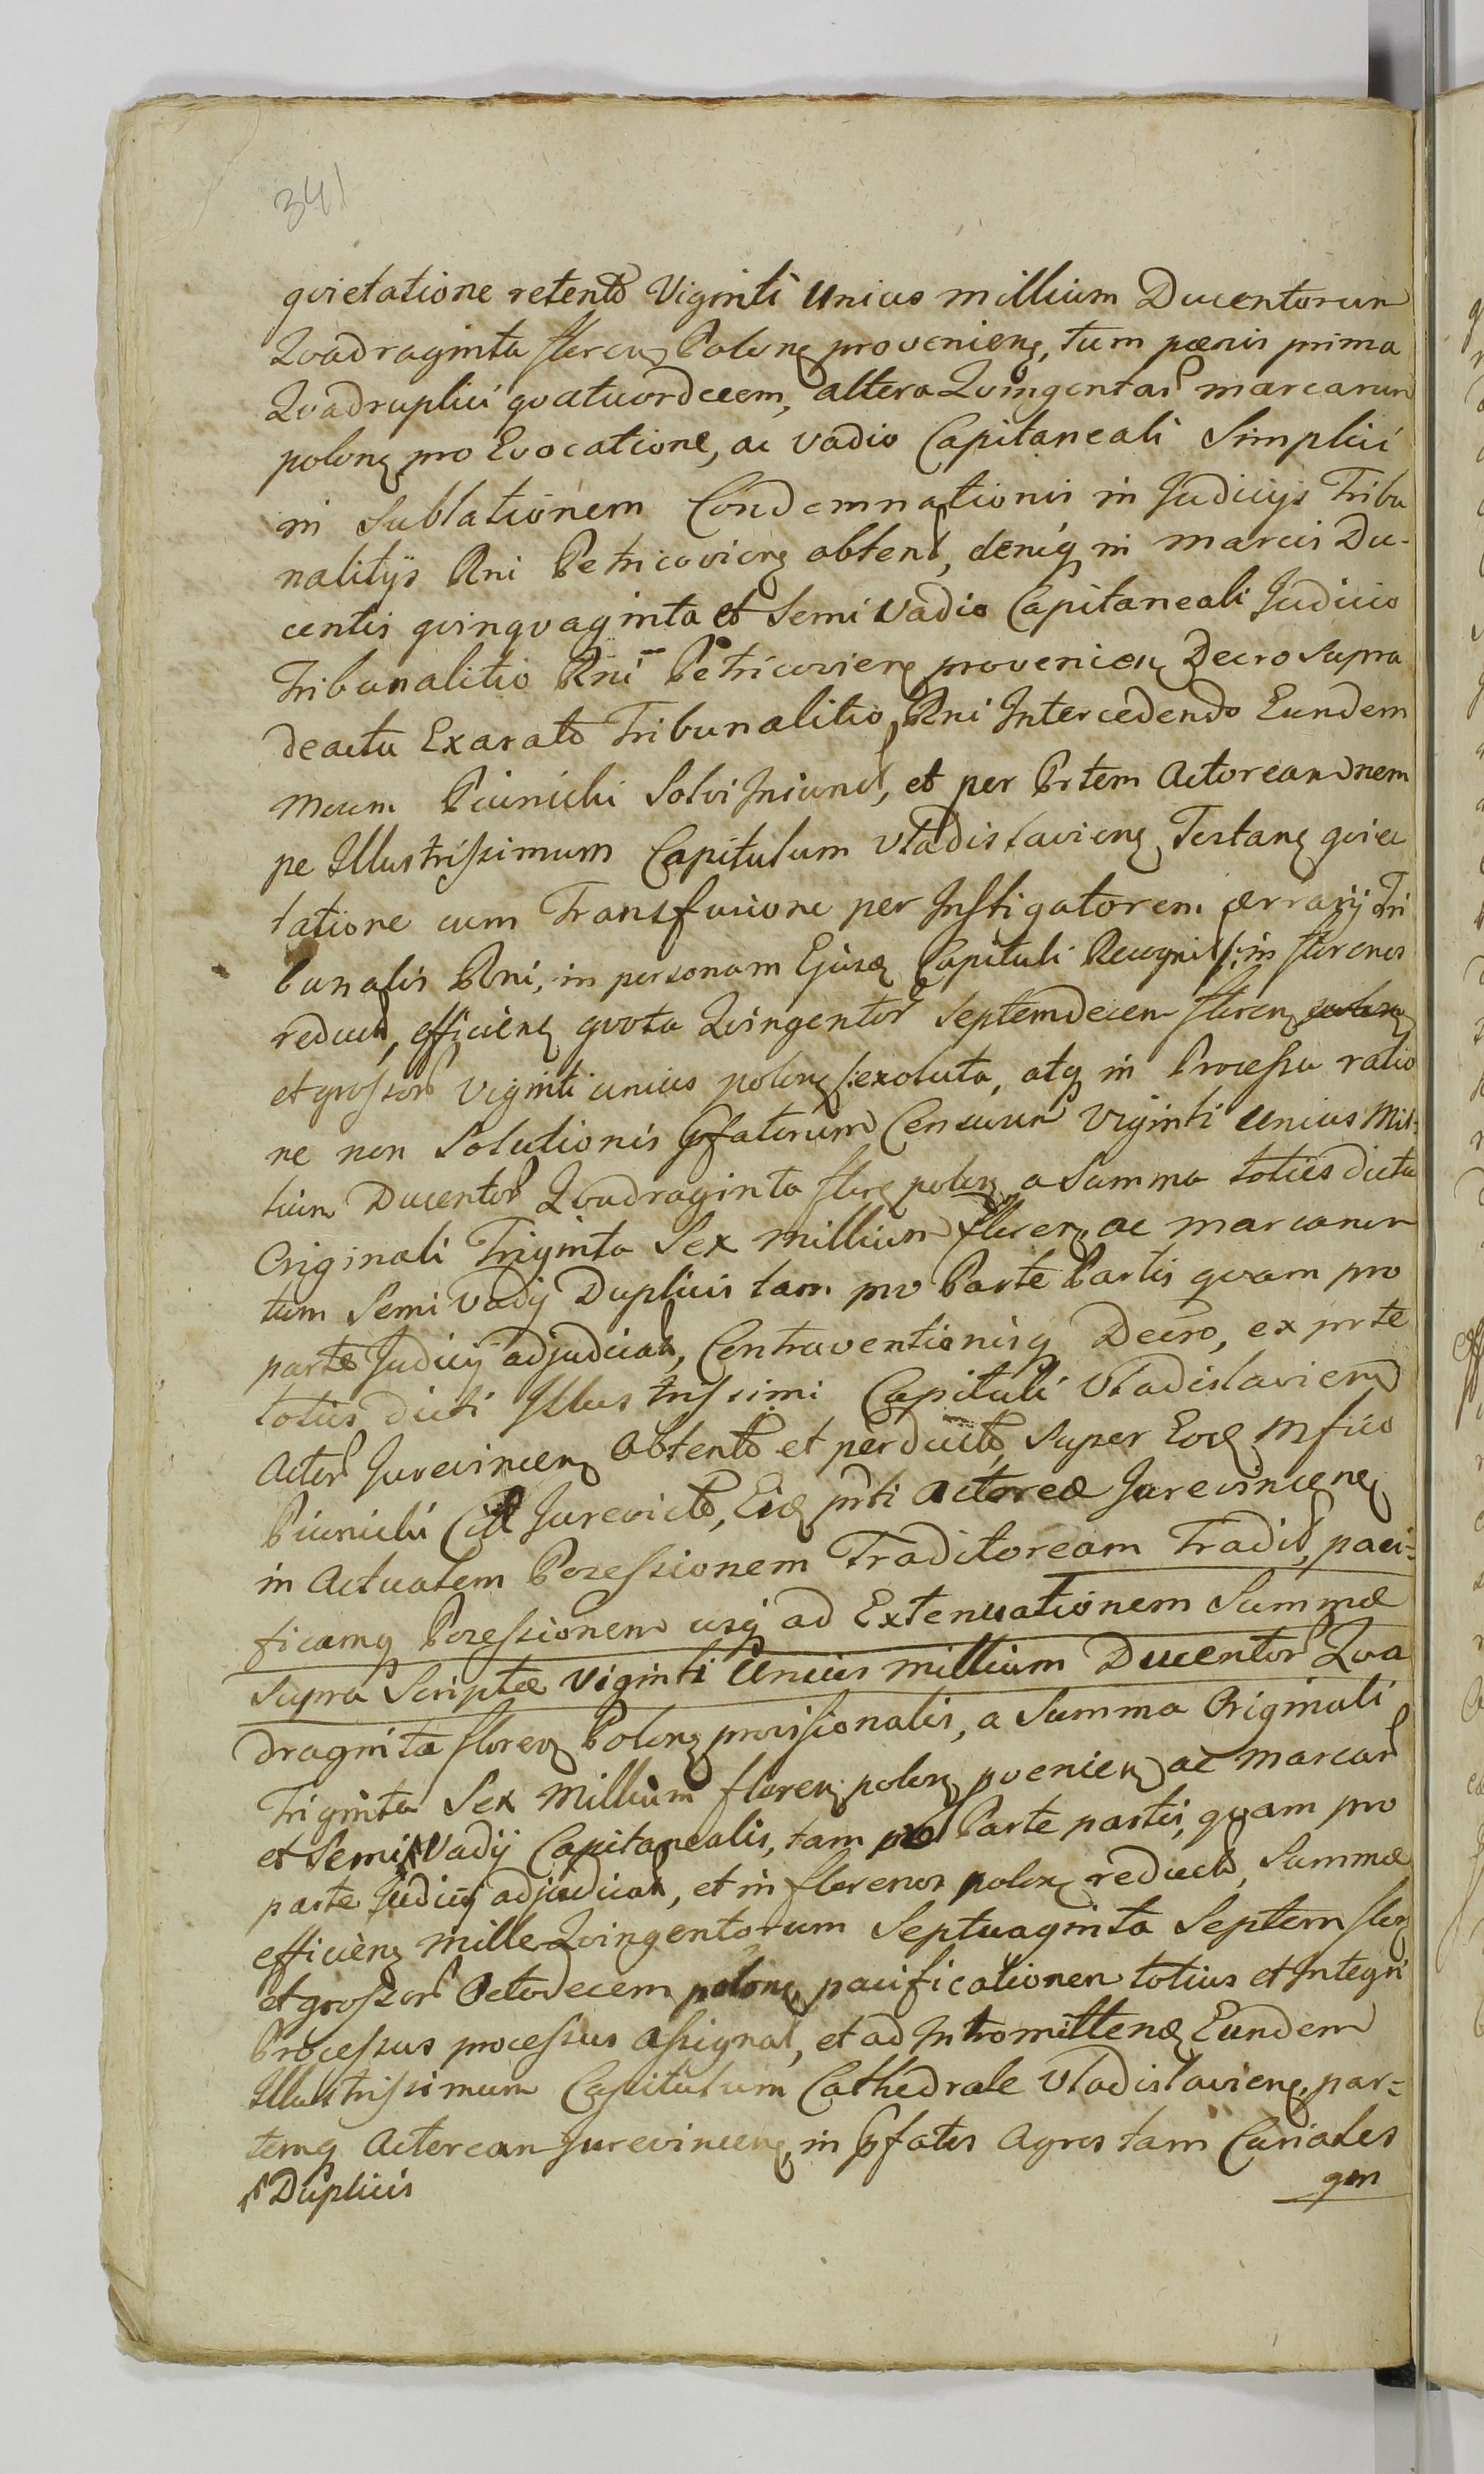 341
qvietatione retento Viginti Unius millium Ducentorum
Qvadraginta floren Polonę provenienę, tum pœnis prima
Qvadruplici qvatuordecem, altera Qvingentar marcarum
polonę pro Evocatione, ac vadio Capitaneali Simplici
in Sublationem Condemnationis in Judicijs Tribu
nalitijs Rni Petricovienę obtent, deniq in marcis Du-
centis qvinqvaginta et Semi Vadio Capitaneali Judicio
Tribunalitio Rni Petricovienę provenien Decro Supra
deactu Exarato Tribunalitio Rni Intercedendo Eundem
Mcum Piwnicki Solvi Iniunct, et per Prtem Actoream nem
pe Illustrissimum Capitulum Vladislavienę Testanę qvie
tatione cum Transfusione per Instigatorem ærrarij Tri
bunalis Rni, in personam Ejusd Capituli Recognit /: in florenos
reduct, efficienę qvota Qvingentor Septemdecem floren
et grossor Viginti unius polonę /: exoluta, atq in Processu ratio
ne non Solutionis Pfatorum Censuum Viginti Unius Mil-
lium Ducentor Qvadraginta florę polonę a Summa toties dicta
Originali Triginta Sex millium floren ac marcarum
tum Semi Vadij Duplicis tam pro Parte Partis qvam pro
parte Judicij adjudicat, Contraventionisq Decro, ex prte
toties dicti Illustrissimi Capituli Vladislavien
Actor Jurevincen Obtento et perducto, Super Eod Mfico
Piwnicki Cit Jurevicto, Eid prti Actoreæ Jurevincenę
in Actualem Possessionem Traditoream Tradit, paci-
ficamq Possessionem usq ad Extenuationem Summæ
Supra Scriptæ Viginti Unius millium Ducentor Qva
draginta floren Polonę provisionalis, a Summa Originali
Triginta Sex Millium floren polonę poenien ac marcar
et Semi Vadij Capitanealis, tam pro Parte partis, qvam pro
parte Judicij adjudicat, et in florenos polonę reduct, Summæ
efficienę mille Qvingentorum Septuaginta Septem floren
et grossor Octodecem polonę pacificationen totius et Integri
Processus processus assignat, et ad Intromittend Eundem
Illustrissimum Capitulum Cathedrale Vladislavienę, par-
temq Actoream Jurevincenę, in Pfatos Agros tam Curiales
Duplicis
qm